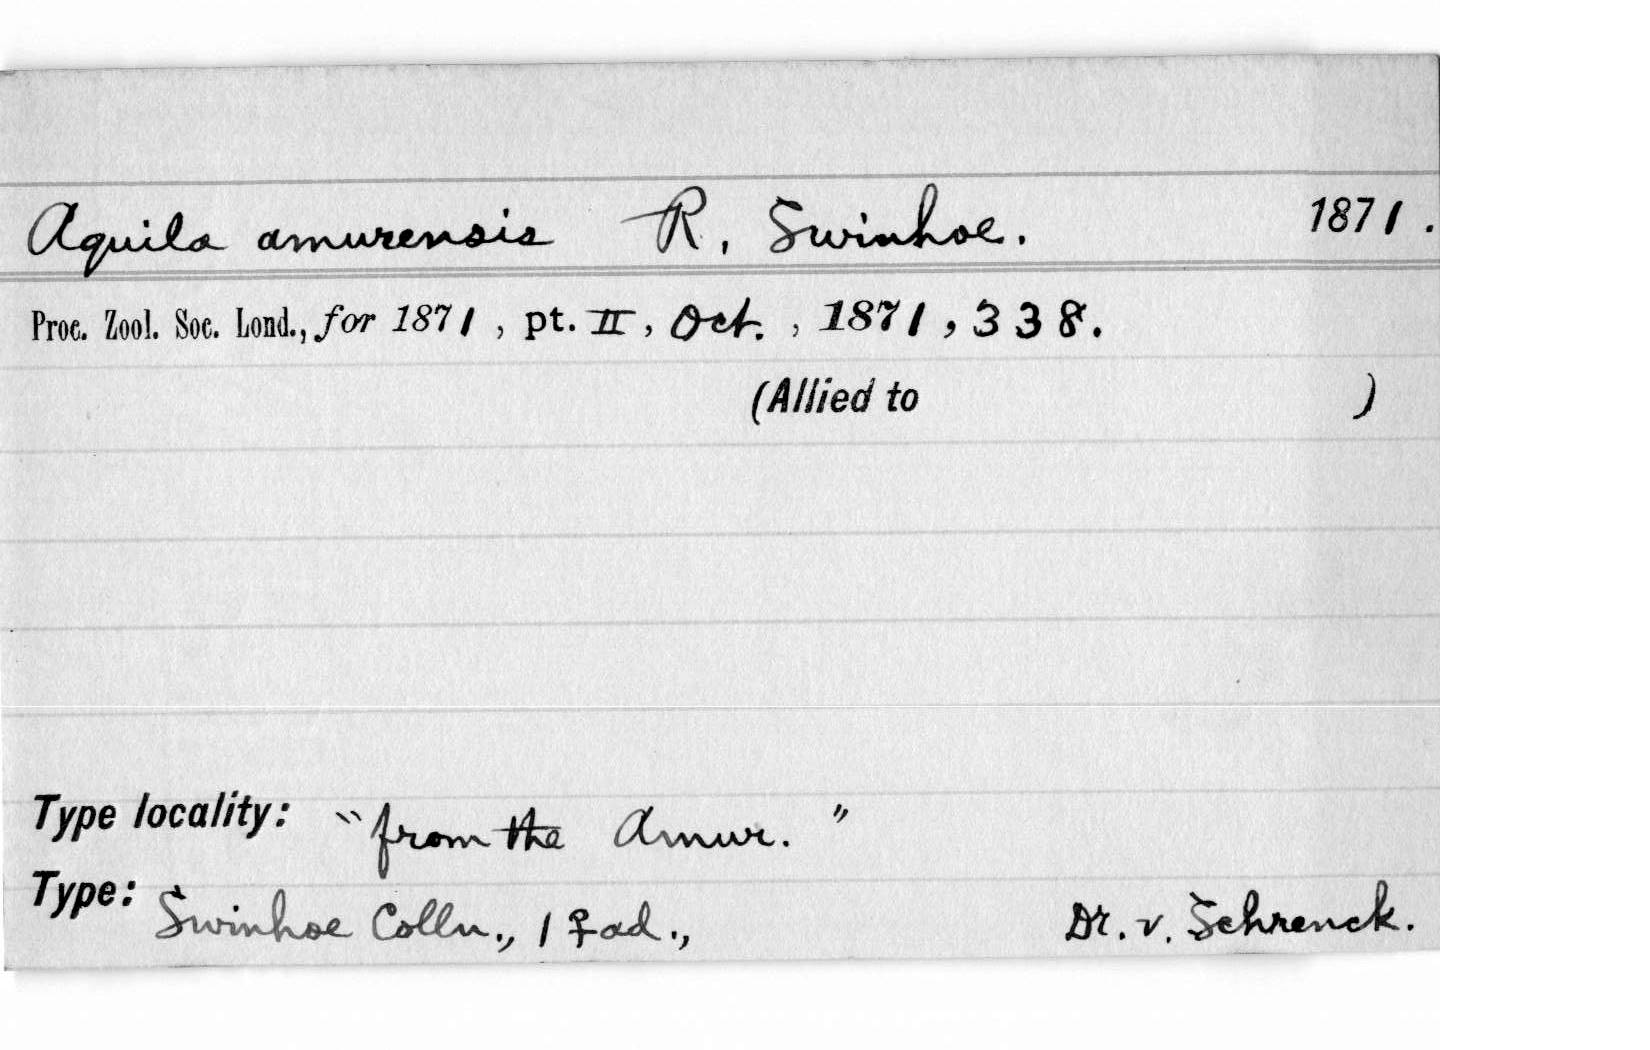 Aquila amurensis R. Swinhoe. 1871.
Proc. Zool. Soc. Lond., for 1871, pt. II, Oct., 1871, 338.
(Allied to )
Type locality: "from the Amur."
Type: Swinhoe Colln., 1 ♀ ad., Dr. v. Schrenck.